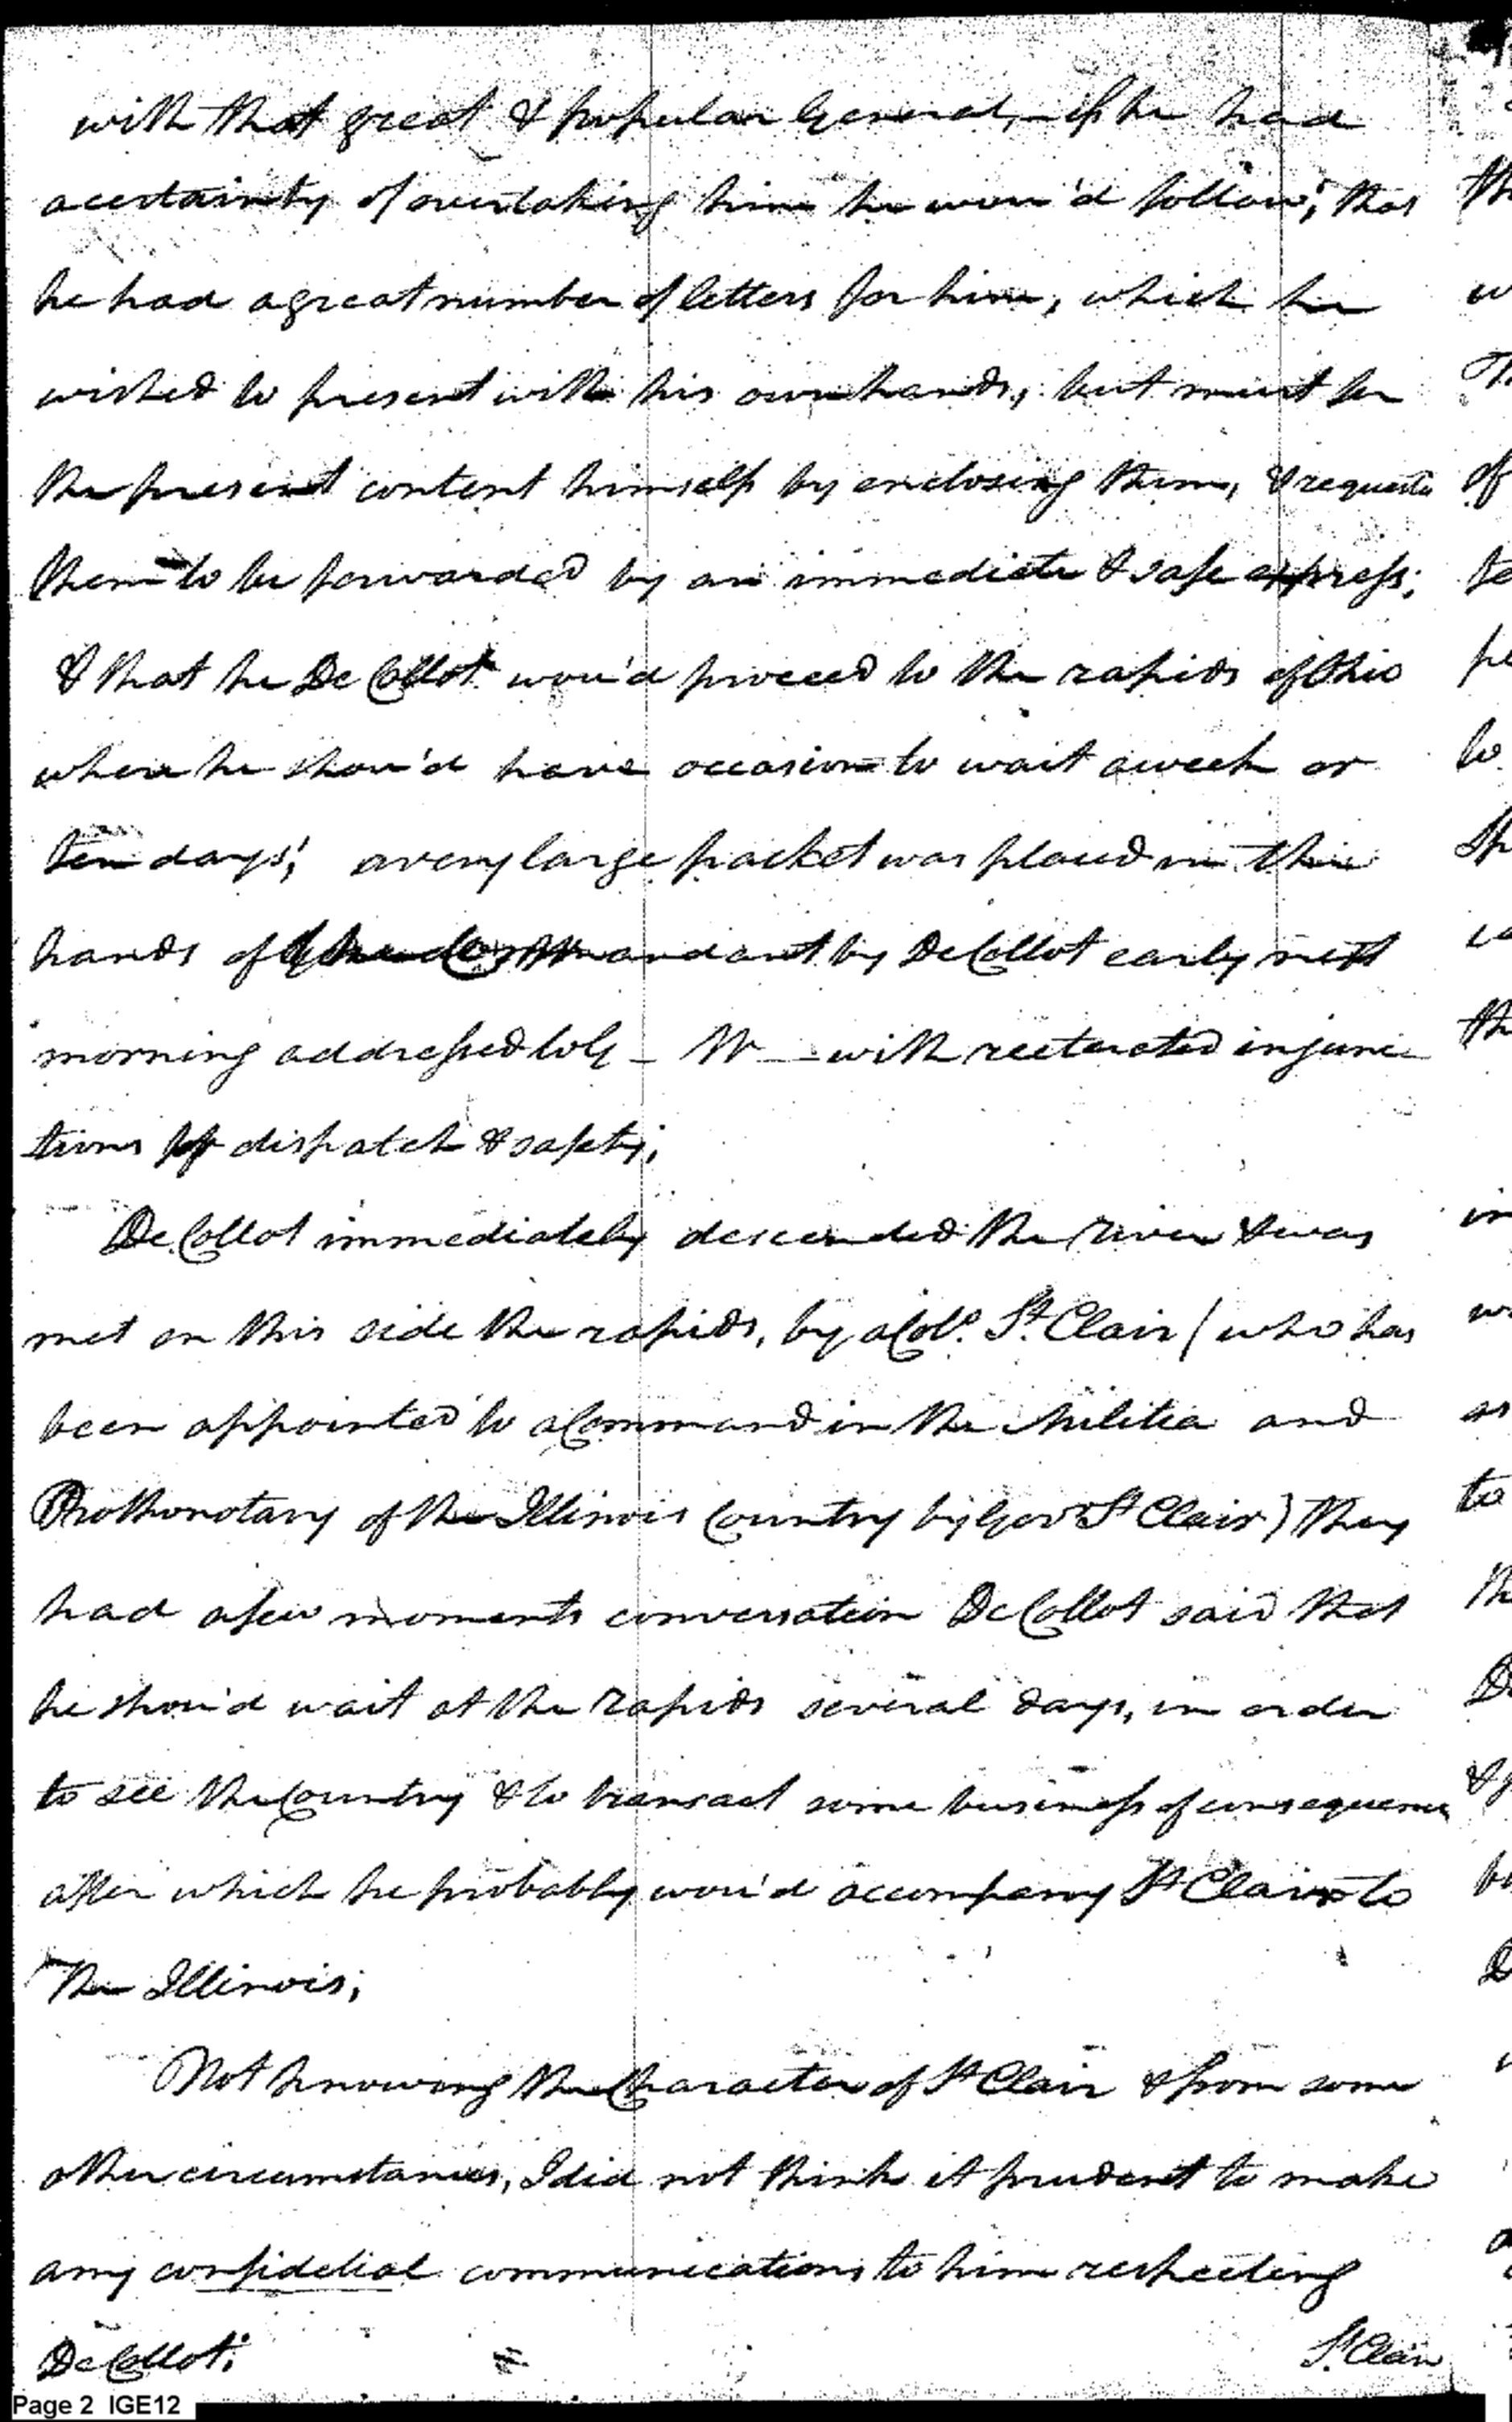 with that great & popular General, – if he had
a certainty of overtaking him he wou'd follow; that
he had a great number of letters for him, which he
wished to present with his own hands, but must for
the present content himself by enclosing them, & requests
them to be forwarded by an immediate & safe express;
& that he De Collot wou'd proceed to the rapids of Ohio
where he shou'd have occasion to wait a week or
ten days; a very large packet was placed in the
hands of the Commandant by De Collot early next
morning addressed to G – W – with reeterated injunc
tions of dispatch & safety;
De Collot immediately descended the river & was
met on this side the rapids, by a Colo. St. Clair (who has
been appointed to a Command in the Militia and
Prothonotary of the Illinois Country by Govr St Clair) they
had a few moments conversation De Collot said that
he shou'd wait at the rapids several days, in order
to see the Country & to transact some business of consequence
after which he probably wou'd accompany St Clair to
the Illinois;
Not knowing the Character of St Clair & from some
other circumstances, I did not think it prudent to make
any confidetial communications to him respecting
De Collot;
St. Clair
Page 2 IGE12